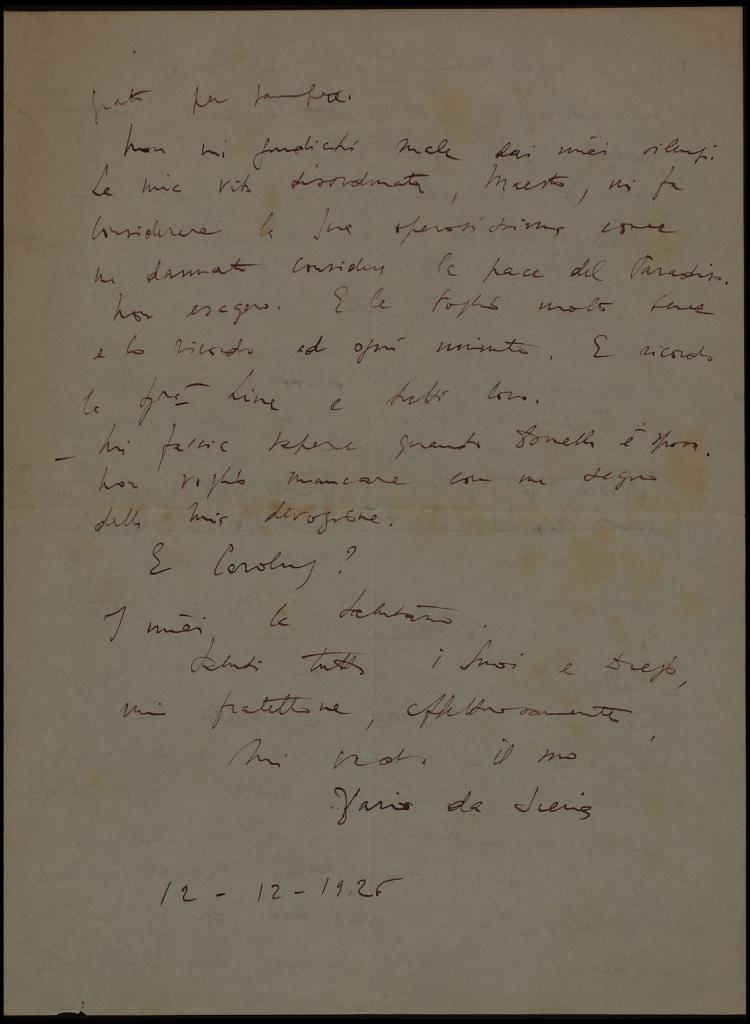 grato per sempre.
Non mi giudichi male dai miei silenzi.
La mia vita disordinata, Maestro, mi fa
considerare la Sua operosissima come
un dannato considera la pace del Paradiso.
Non esagero. E le voglio molto bene
e lo ricordo ad ogni minuto. E ricordo
la Sig.ra Lina e tutti loro.
– Mi faccia sapere quando Donella è sposa.
Non voglio mancare con un segno
della mia devozione.
E
I miei la salutano.
Saluti tutti i Suoi e Diego,
mio fratellone, affettuosamente,
Mi creda il suo
da Siena
12 - 12 - 1925